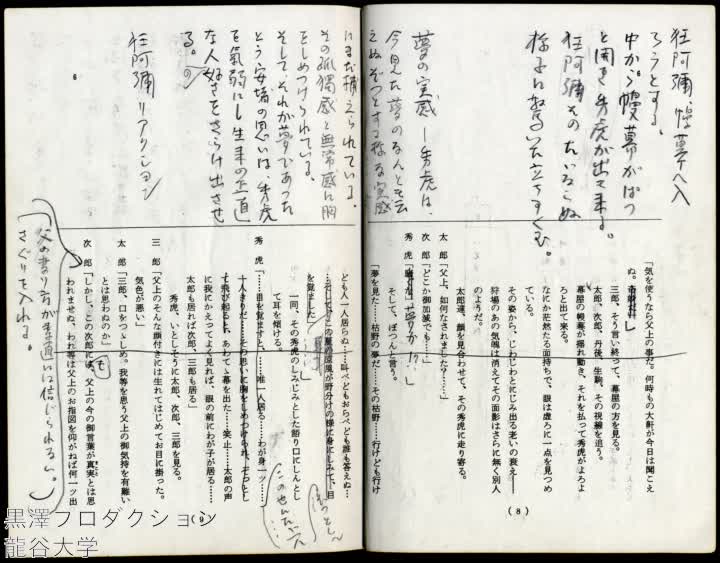 狂阿彌、幔幕へ入
ろうとする。
中から幔幕がぱっ
と開き秀虎が出て来る。
狂阿彌そのたゞならぬ
様子に驚いた立ちすくむ。
夢の実感―秀虎は、
今見た夢のなんとも云
えぬぞっとする様な実感
「気を使うなら父上の事だ。何時もの大鼾が今日は聞こえ
ぬ。
三郎、そう言い終って、幕屋の方を見る。
太郎、次郎、丹後、生駒、その視線を追う。
幕屋の幔幕が揺れ動き、それを払って秀虎がよろよ
ろと出て来る。
なにか茫然たる面持ちで、眼は虚ろに一点を見つめ
その姿から、じわじわとにじみ出る老いの衰え――
狩場のあの気魄は消えてその面影はさらに無く別人
のようだ。
太郎達、顔を見合わせて、その秀虎に走り寄る。
太郎「父上、如何なされました？……」
次郎「どこか御加減でも……」
秀虎
そして、ぽつんと言う。
「夢を見た……枯野の夢だ……その枯野……行けども行け
(8)
にまだ捕えられている。
その孤獨感と無常感に胸
をしめつけられている。
そして、それが夢であった
とう安堵の思いは、秀虎
を氣弱にし生来の正直
な人好さをさらけ出させ
る。
狂阿彌リアクション
ども人一人居らぬ……叫べどもおらべども誰も答えぬ…
を覚ました
一同、その秀虎のしみじみとした語り口にしんとし
て耳を傾ける。
秀虎「……目を覚ますと……唯一人居る……わが身一ツ…
十人きりだ……その思いに胸をしめつけられ、ぞっとし
て飛び起るし、あわてゝ幕を出た……笑止……太郎の声
に我にかえってよう見れば、眼の前にわが子が居る……
太郎も居れば次郎、三郎も居る」
秀虎、いとしそうに太郎、次郎、三郎を見る。
三郎「父上のそんな顔付きには生れてはじめてお目に掛った。
気色が悪い」
太郎「三郎、口をつゝしめ。我等を思う父上の御気持を有難い
とは思わぬのか」
次郎「しかし、この次郎には、父上の今の御言葉が真実とは思
われませぬ、われ等は父上のお指図を仰がねば何一ツ出
も
父の変り方が真直には信じられない。
さぐりを入れる。
(9)
黒澤プロダクション
龍谷大学